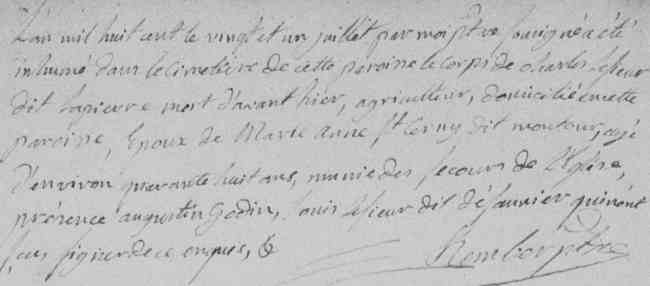 L'an mil huit cent le vingt et un juillet par moi ptre soussigné a été
inhumé dans le cimetière de cette paroisse le corps de charles lesieur
dit lapierre mort d'avant hier, agriculteur, domicilié en cette
paroisse, Epoux de Marie Anne St Cerny dit moutour, agé
d'environ quarante huit ans, munie des secours de l'Eglise,
présence augustin Godin, Louis lesieur dit désaunier qui n'ont
sçus signer de ce enquis, &
ptre